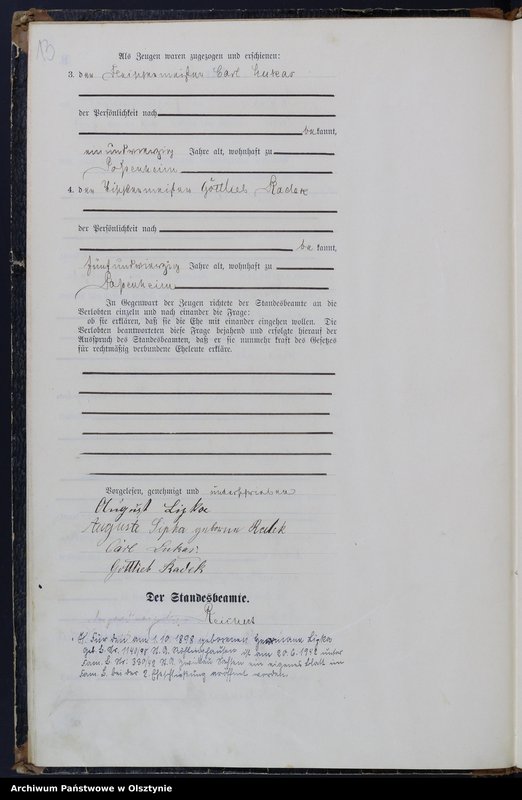 13
Als Zeugen waren zugezogen und erschienen:
3. der Carl Lukas
der Persönlichkeit nach
be kannt,
ein und vierzig Jahre alt, wohnhaft zu
Passenheim
4. der Gottlieb Radek
der Persönlichkeit nach
be kannt,
fünf und vierzig Jahre alt, wohnhaft zu
Passenheim
In Gegenwart der Zeugen richtete der Standesbeamte an die
Verlobten einzeln und nach einander die Frage:
ob sie erklären, daß sie die Ehe mit einander eingehen wollen. Die
Verlobten beantworteten diese Frage bejahend und erfolgte hierauf der
Ausspruch des Standesbeamten, daß er sie nunmehr kraft des Gesetzes
für rechtmäßig verbundene Eheleute erkläre.
Vorgelesen, genehmigt und unterschrieben
August Lipka
Auguste Lipka geborene Radek
Carl Lukas
Gottlieb Radek
Der Standesbeamte.
Für den am 1.10.1898 geborenen Hermann Lipka
geb. ist am 20.6.1942 unter
Fam. B. Nr. ein eigenes Blatt im
Fam. B. bei der 2. Eheschließung eröffnet worden.
Archiwum Państwowe w Olsztynie